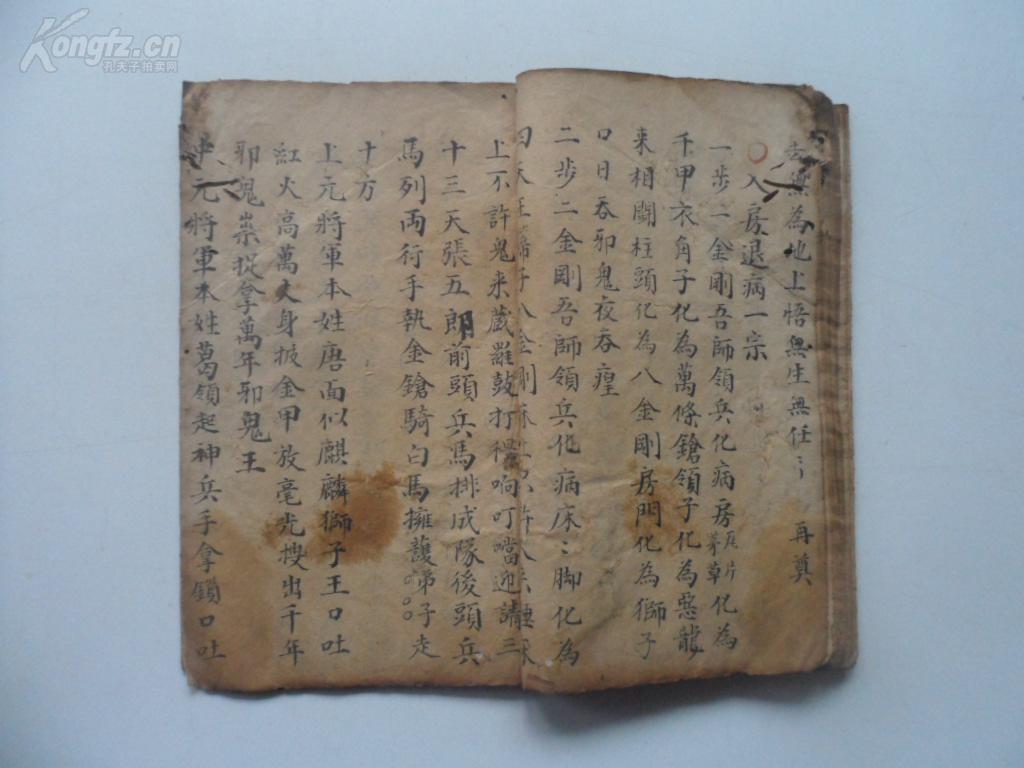 Kongfz.cn
孔夫子拍卖网
無為地上悟無生無任〻 再奠
○入房退病一宗
一步一金剛吾師領兵化病房瓦片茅草化為
千甲衣角子化為萬條鎗領子化為惡龍
来相闘柱頭化為八金剛房門化為獅子
口日吞邪鬼夜吞瘟
二步二金剛吾師領兵化病床〻脚化為
四天王 子八金剛
上不許鬼来藏羅鼓打得响叮噹迎請三
十三天張五郎前頭兵馬排成隊後頭兵
馬列両行手執金鎗騎白馬擁護弟子走
十方
上元將軍本姓唐面似麒麟獅子王口吐
紅火高萬丈身披金甲放毫光搜出千年
邪鬼祟捉拿萬年邪鬼王
中元將軍本姓葛領起神兵手拿鎖口吐